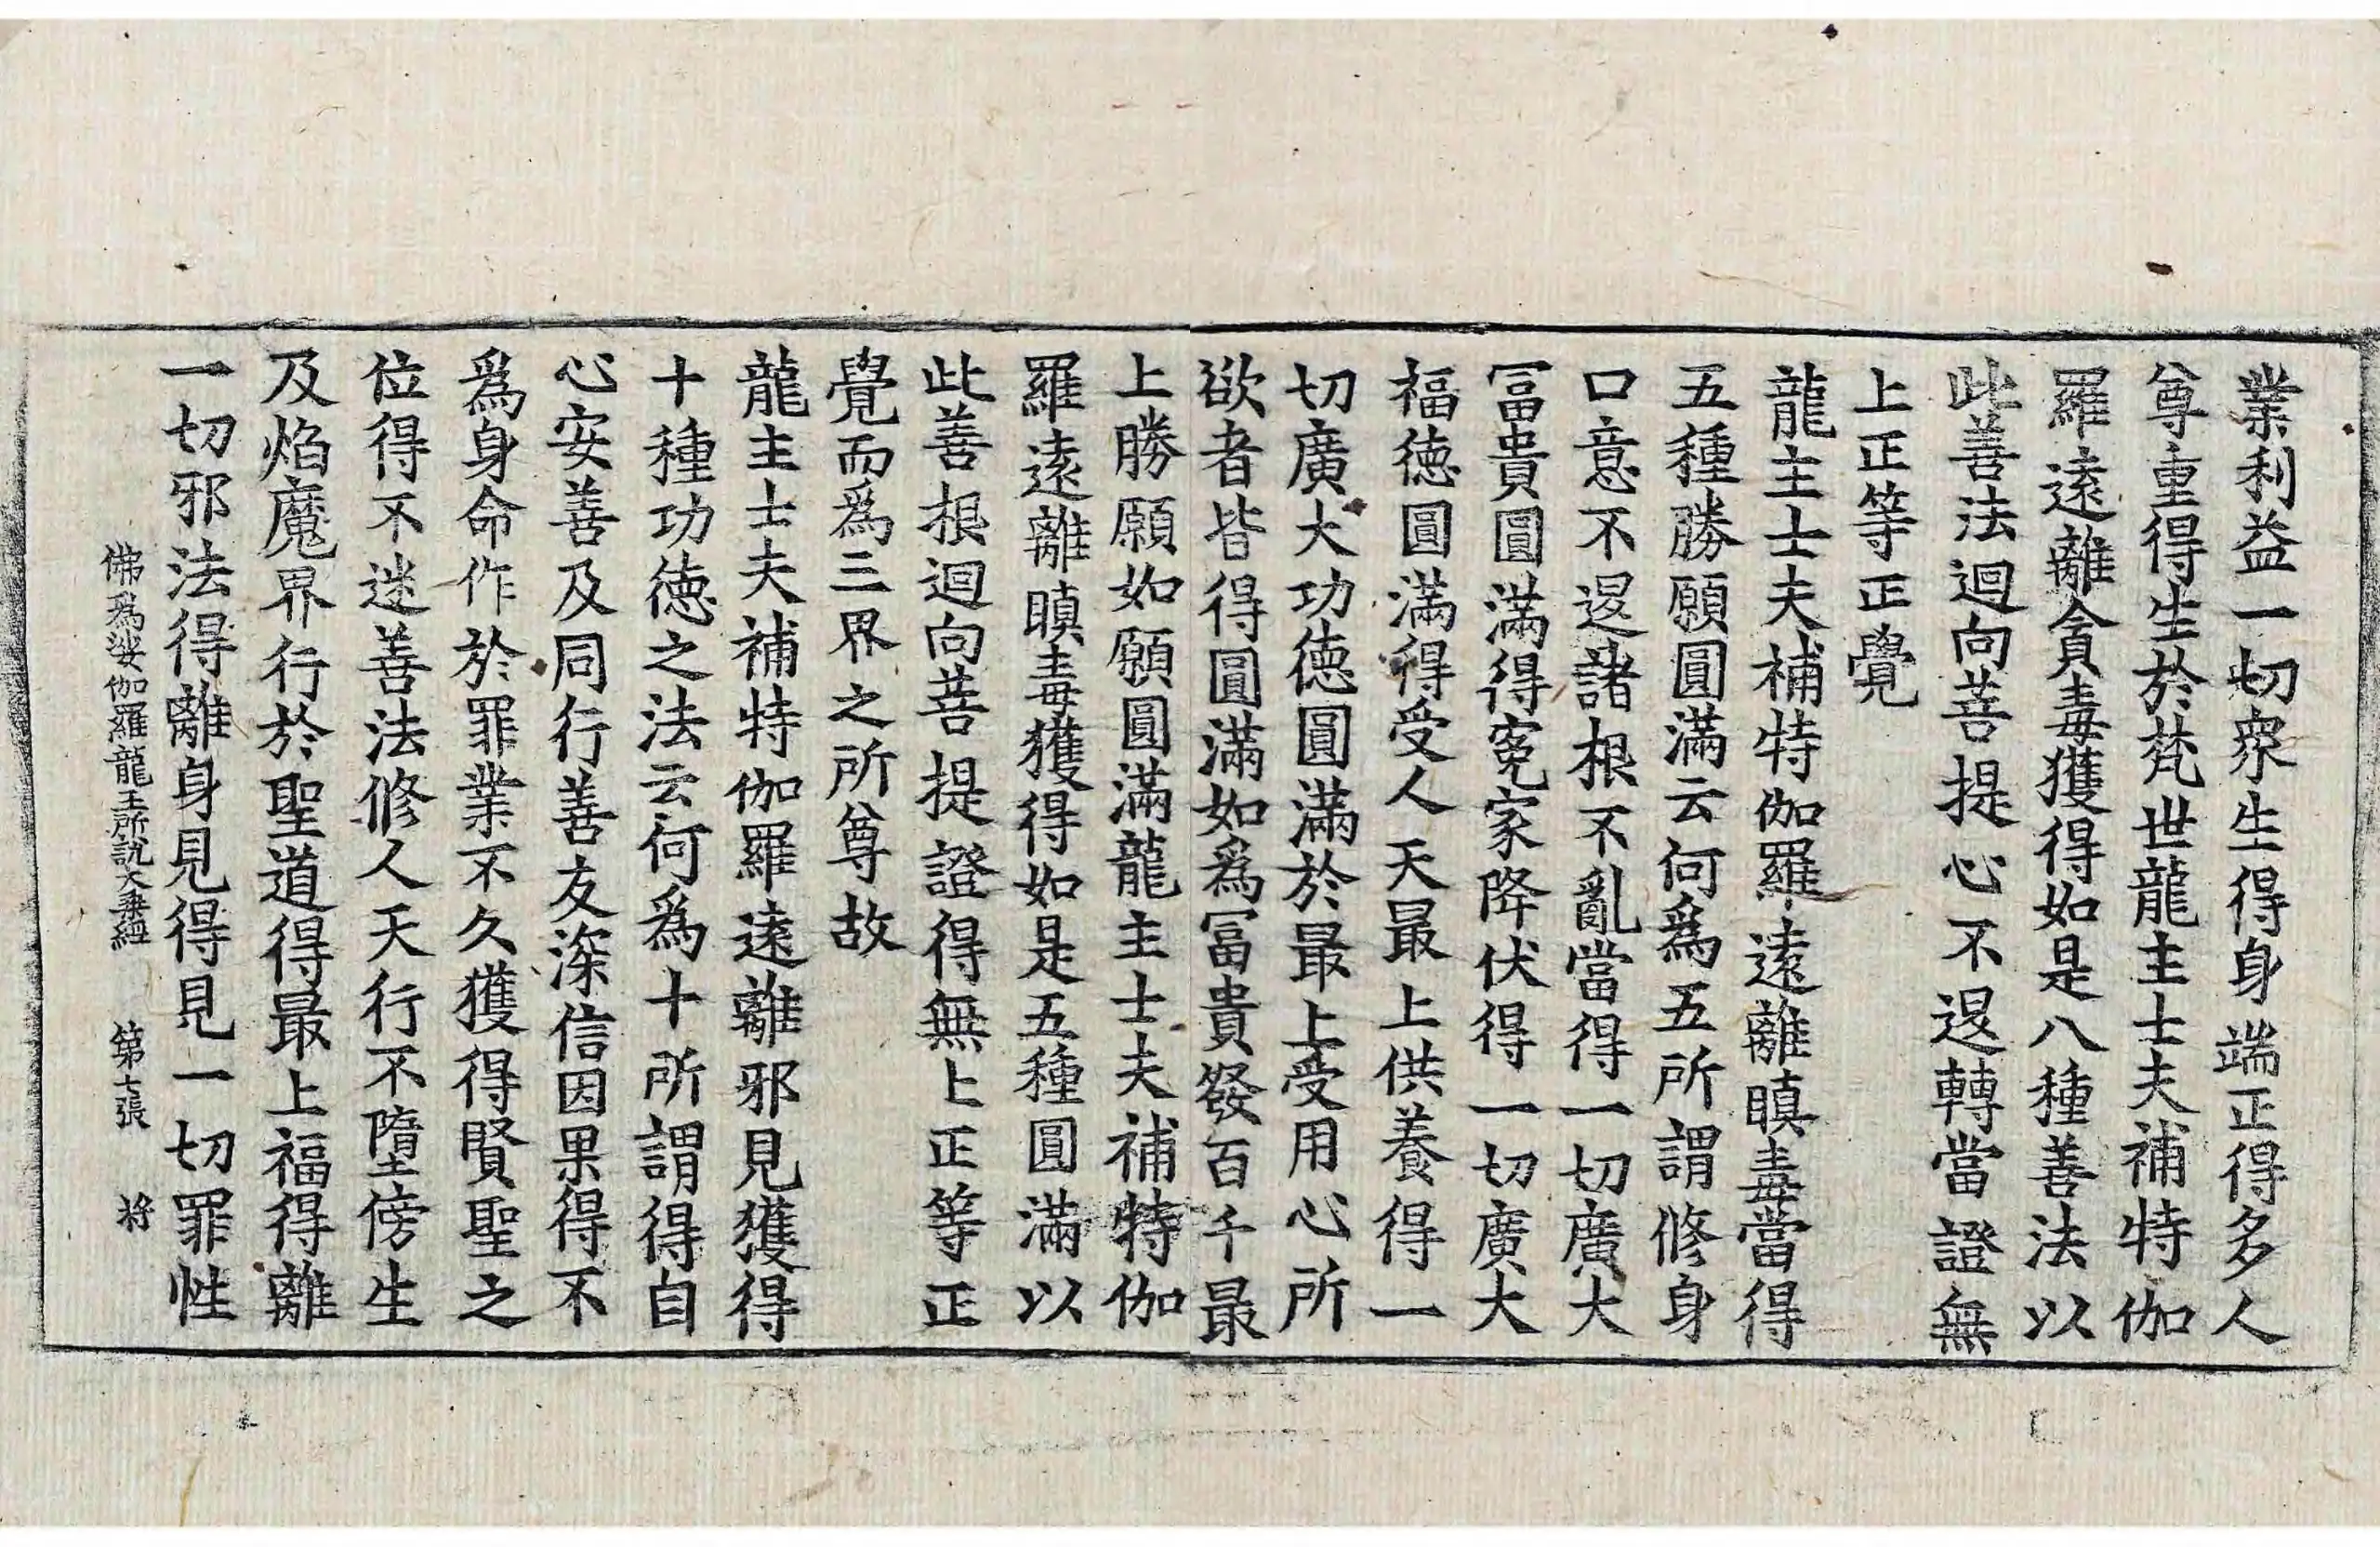 業利益一切衆生得身端正得多人
尊重得生於梵世龍主士夫補特伽
羅逺離貪毒獲得如是八種善法以
此善法迴向菩提心不退轉當證無
上正等正覺
龍主士夫補特伽羅逺離瞋毒當得
五種勝願圓滿云何爲五所謂修身
口意不退諸根不亂當得一切廣大
冨貴圓滿得寃家降伏得一切廣大
福徳圓滿得受人天最上供養得一
切廣大功徳圓滿於最上受用心所
欲者皆得圓滿如爲冨貴發百千最
上勝願如願圓滿龍主士夫補特伽
羅逺離瞋毒獲得如是五種圓滿以
此善根迴向菩提證得無上正等正
覺而爲三界之所尊故
龍主士夫補特伽羅逺離邪見獲得
十種功徳之法云何爲十所謂得自
心安善及同行善友深信因果得不
爲身命作於罪業不久獲得賢聖之
位得不迷善法修人天行不墮傍生
及焰魔界行於聖道得最上福得離
一切邪法得離身見得見一切罪性
佛爲娑伽羅龍王所說大乘經 第七張 將